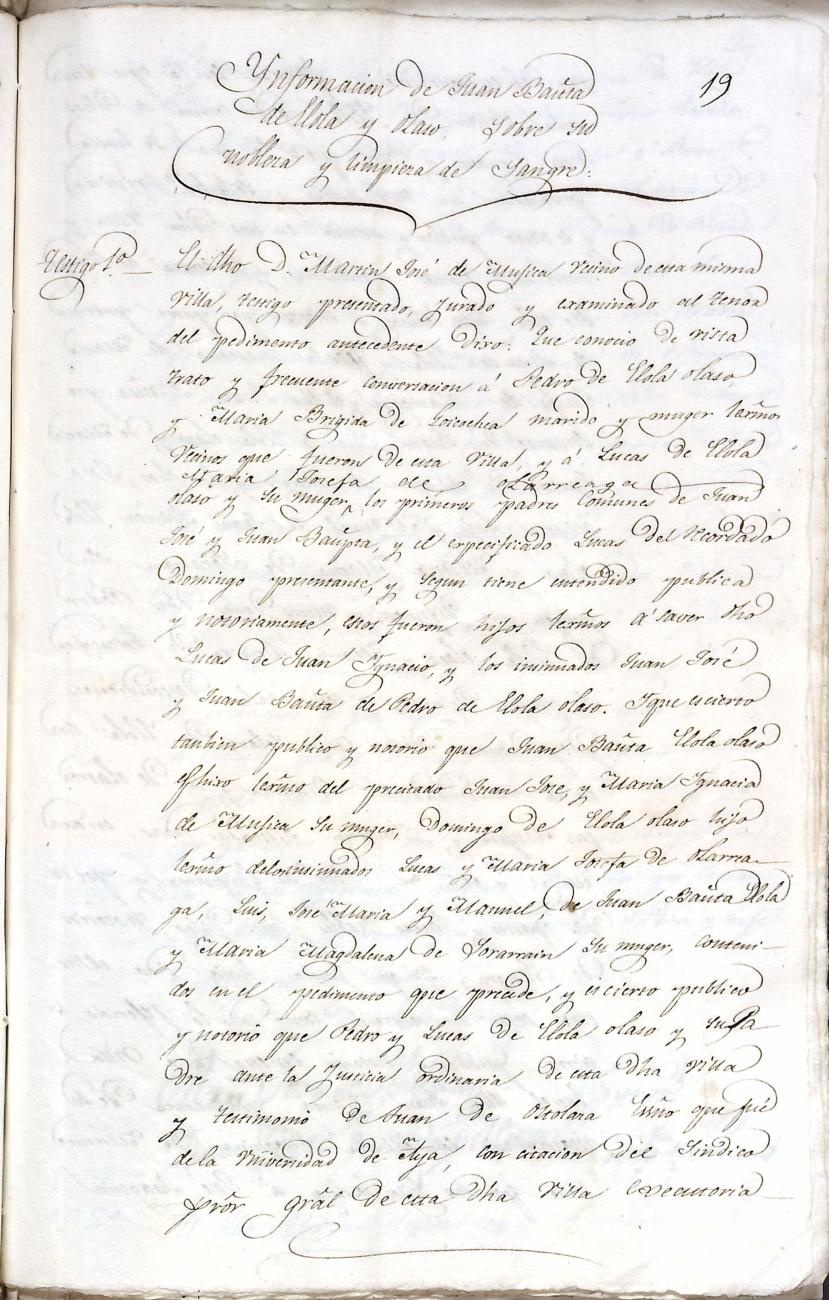 19
Ynformacion de Juan Bauta
de Elola y olaso. Sobre su
nobleza y limpieza de Sangre:
Testigo 1.º
El dho D. Martin José de Musica Vecino de esta misma
Villa, testigo presentado, Jurado y examinado al tenor
del pedimento antecedente Dixo: Que conocio de vista
trato y frecuente conversacion á Pedro de Elola olaso,
y Maria Brigida de Goicochea marido y muger lexmos
Vecinos que fueron de esta Villa, y á Lucas de Elola
Maria Josefa de olarreaga
olaso y su muger, los primeros padres Comunes de Juan
José y Juan Baupta, y el expecificado Lucas del Recordado
Domingo presentante, y segun tiene entendido publica
y notoriamente, estos fueron hijos lexmos á saver dho
Lucas de Juan Ygnacio, y los insinuados Juan José
y Juan Bauta de Pedro de Elola olaso. Y que es cierto
tambien publico y notorio que Juan Bauta Elola olaso
es hixo lexmo del precitado Juan Jose, y Maria Ygnacia
de Musica su muger, Domingo de Elola olaso hijo
lexmo delosinsinuados Lucas y Maria Josefa de olarrea-
ga, Luis, José Maria y Manuel, de Juan Bauta Elola
y Maria Magdalena de Sorarrain su muger, conteni-
dos en el pedimento que precede, y es cierto publico
y notorio que Pedro y Lucas de Elola olaso y su Pa-
dre ante la Justicia ordinaria de esta dha villa
y testimonio de Juan de Ostolara Essno que fué
de la Vniversidad de Aya, con citacion del Sindico
pror gral de esta dha Villa executoria-